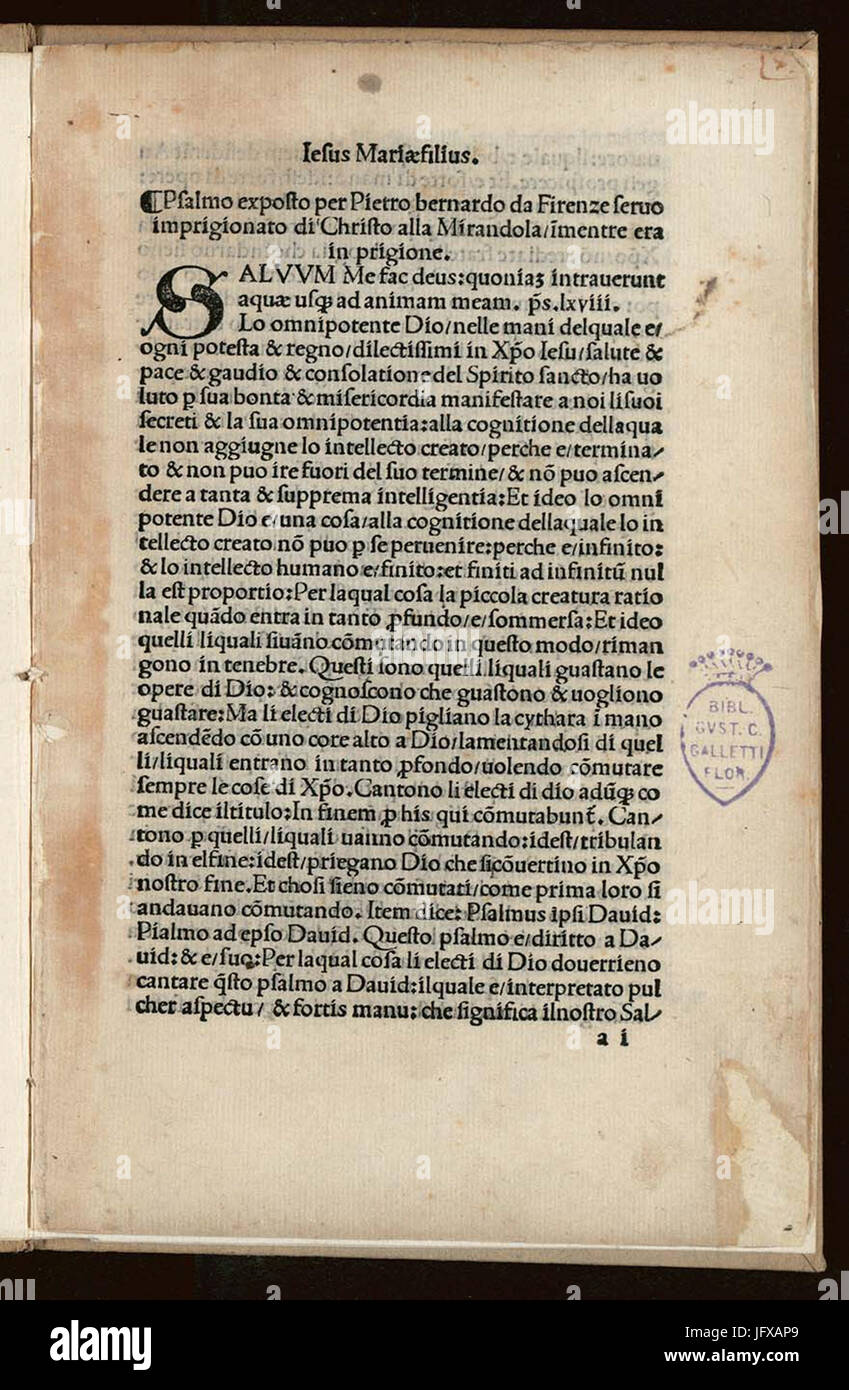 Iesus Mariæ filius.
¶Psalmo exposto per Pietro bernardo da Firenze seruo
imprigionato di Christo alla Mirandola/ĩmentre era
in prigione.
SALVVM Me fac deus:quoniaʒ intrauerunt
aquæ usqꝫ ad animam meam. p̃s.lxviii.
Lo omnipotente Dio/nelle mani delquale e/
ogni potesta & regno/dilectissimi in Xp̃o Iesu/salute &
pace & gaudio & consolatione del Spirito sancto/ha uo
luto ꝑ sua bonta & misericordia manifestare a noi li suoi
secreti & la sua omnipotentia:alla cognitione dellaqua
le non aggiugne lo intellecto creato/perche e/termina/
to & non puo ire fuori del suo termine/& nõ puo ascen/
dere a tanta & supprema intelligentia:Et ideo lo omni
potente Dio e/una cosa/alla cognitione dellaquale lo in
tellecto creato nõ puo ꝑ se peruenire:perche e/infinito:
& lo intellecto humano e/finito:et finiti ad infinitũ nul
la est proportio:Per laqual cosa la piccola creatura ratio
nale quãdo entra in tanto ꝓfundo/e/sommersa:Et ideo
quelli liquali siuãno cõmutando in questo modo/riman
gono in tenebre. Questi sono quelli liquali guastano le
opere di Dio: & cognoscono che guastono & uogliono
guastare:Ma li electi di Dio pigliano la cythara ĩ mano
ascendẽdo cõ uno core alto a Dio/lamentandosi di quel
li/liquali entrano in tanto ꝓfondo/uolendo cõmutare
sempre le cose di Xp̃o. Cantono li electi di dio adũqꝫ co
me dice iltitulo:In finem ꝓ his qui cõmutabunt̃. Can/
tono ꝑ quelli/liquali uanno cõmutando:idest/tribulan
do in elfine:idest/priegano Dio che sicõuertino in Xp̃o
nostro fine. Et chosi sieno cõmutati/come prima loro si
andauano cõmutando. Item dice: Psalmus ipsi Dauid:
Psalmo ad epso Dauid. Questo psalmo e/diritto a Da/
uid: & e/suo:Per laqual cosa li electi di Dio douerrieno
cantare q̃sto psalmo a Dauid:ilquale e/interpretato pul
cher aspectu/ & fortis manu: che significa ilnostro Sal/
a i
BIBL.
GVST. C.
GALLETTI
FLOR.
alamy
Image ID: JFXAP9
www.alamy.com